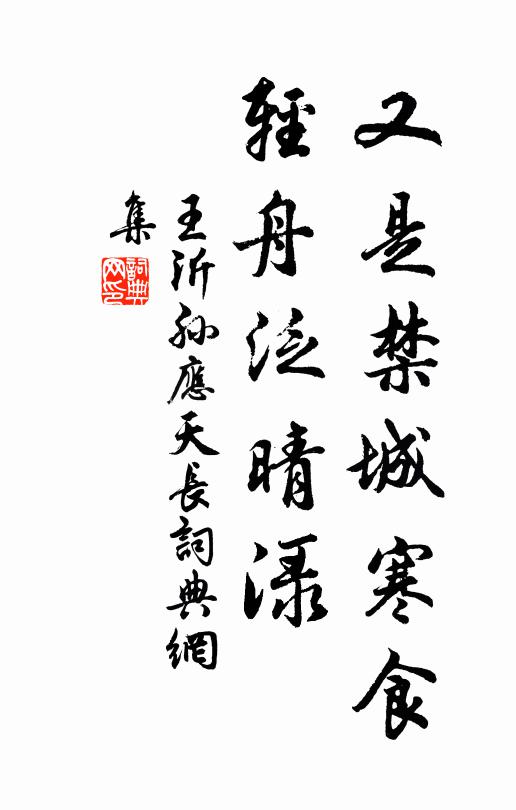 又是禁城寒食
輕舟泛晴渌
王沂孫應天長詞典網
集
詞典網印